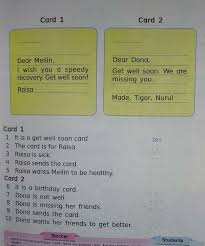 Card 1
Card 2
Dear Meilin,
I wish you a speedy
recovery. Get well soon!
Raisa
Dear Dona,
Get well soon. We are
missing you.
Made, Tigor, Nurul
Card 1
1 It is a get well soon card
2 The card is for Raisa
3 Raisa is sick.
4 Raisa sends the card.
5 Raisa wants Meilin to be healthy.
Card 2
6 It is a birthday card.
7 Dona is not well
8 Dona is missing her friends.
9 Dona sends the card.
10 Dona wants her friends to get better.
Teacher
Students